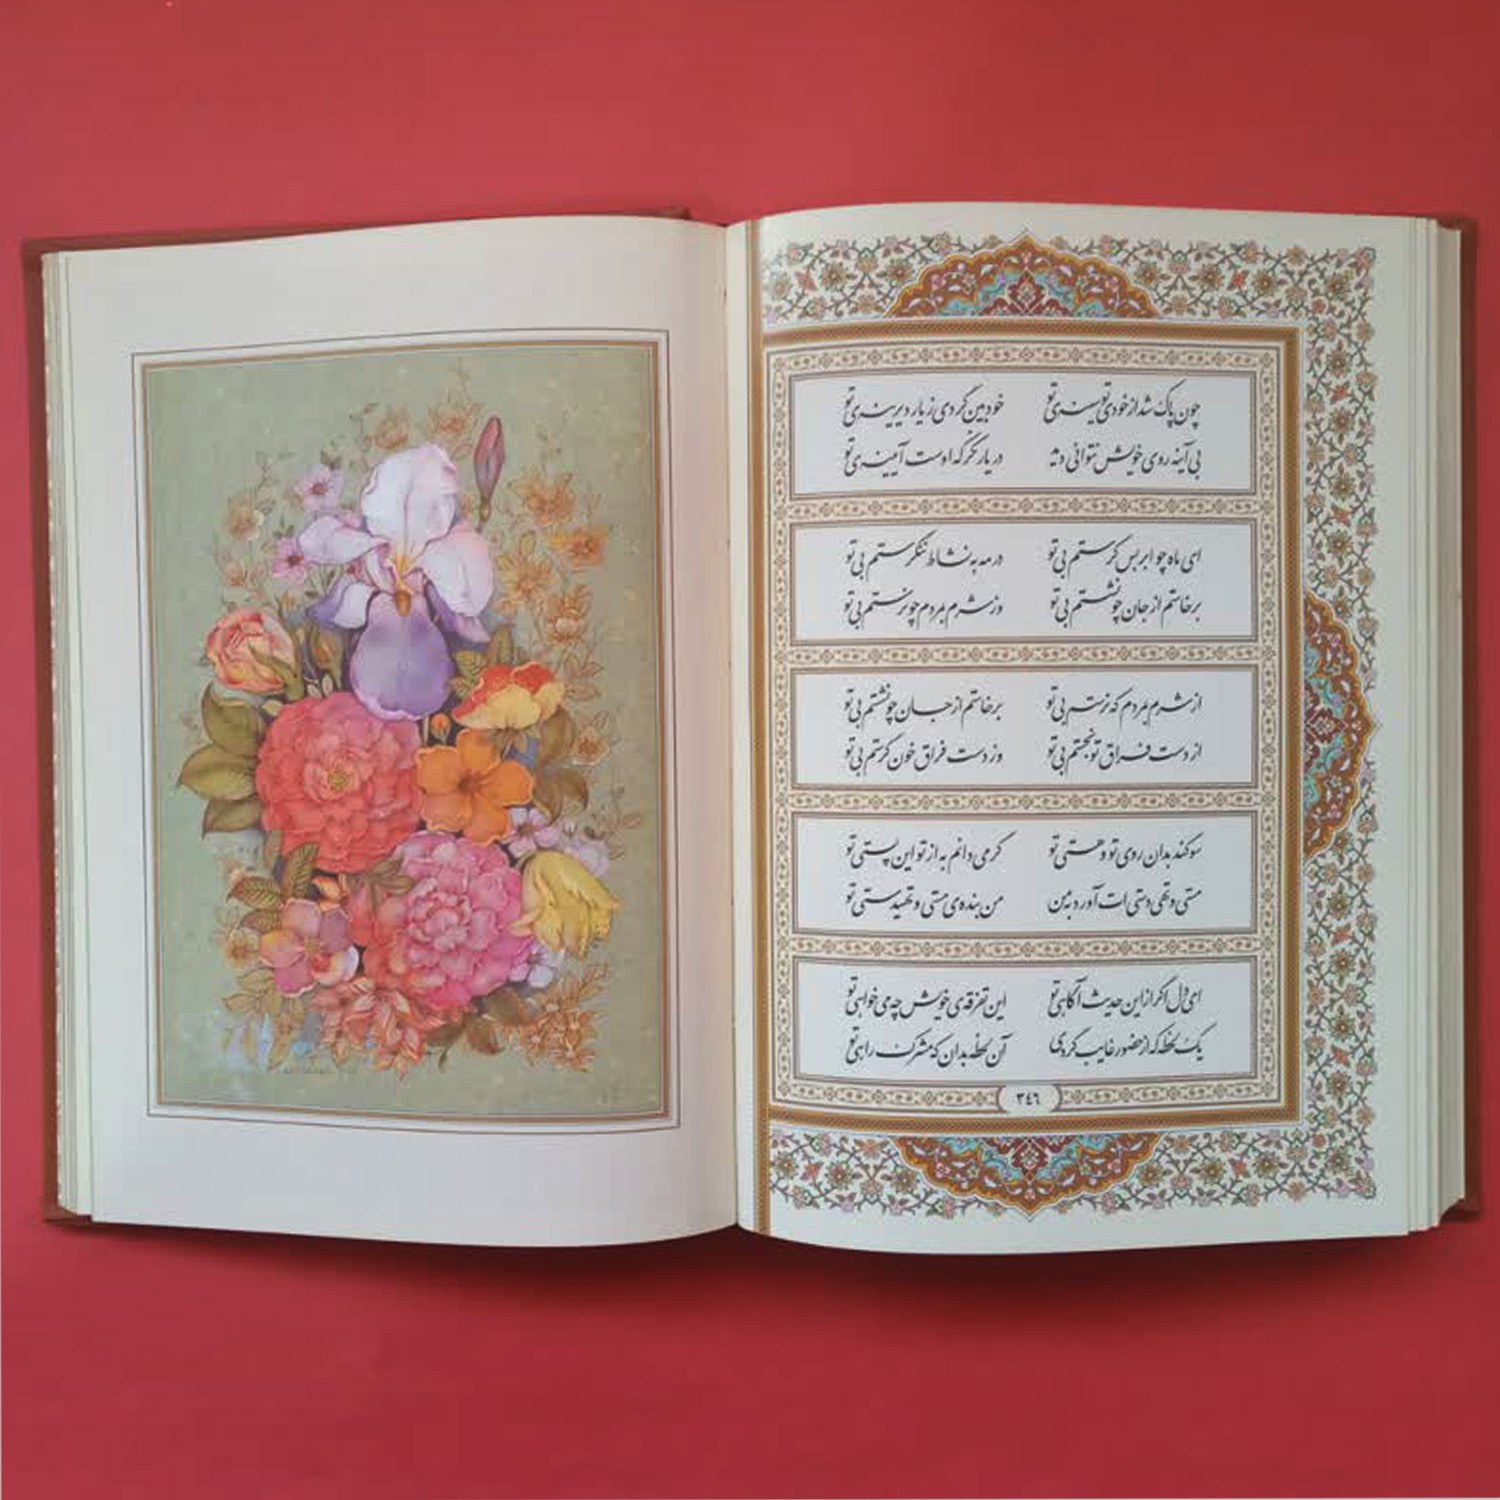 چون پاک شد از خودی تو سینه‌ی تو خودبین گردی ز یار دیرینه‌ی تو
بی آینه روی خویش نتوانی دید در یار نگر که اوست آیینه‌ی تو
ای ماه چو ابر بس گرستم بی‌تو در مه به نشاط ننگرستم بی‌تو
برخاستم از جان چو نشستم بی‌تو وز شرم بمردم چو بی‌تو
از شرم بمردم که بی‌تو برخاستم از جان چو نشستم بی‌تو
از دست فراق تو نجستم بی‌تو وز دست فراق خون گرستم بی‌تو
سوگند بدان روی تو و هستی تو گر می‌دانم به از تو این پستی تو
مستی و تهی دستی‌ات آورد به من من بنده‌ی مستی و تهیدستی تو
ای دل اگر از این حدیث آگاهی تو این تفرقه‌ی خویش چه می‌خواهی تو
یک لحظه که از حضور غایب گردی آن لحظه بدان که مشرک راهی تو
۳۴۶